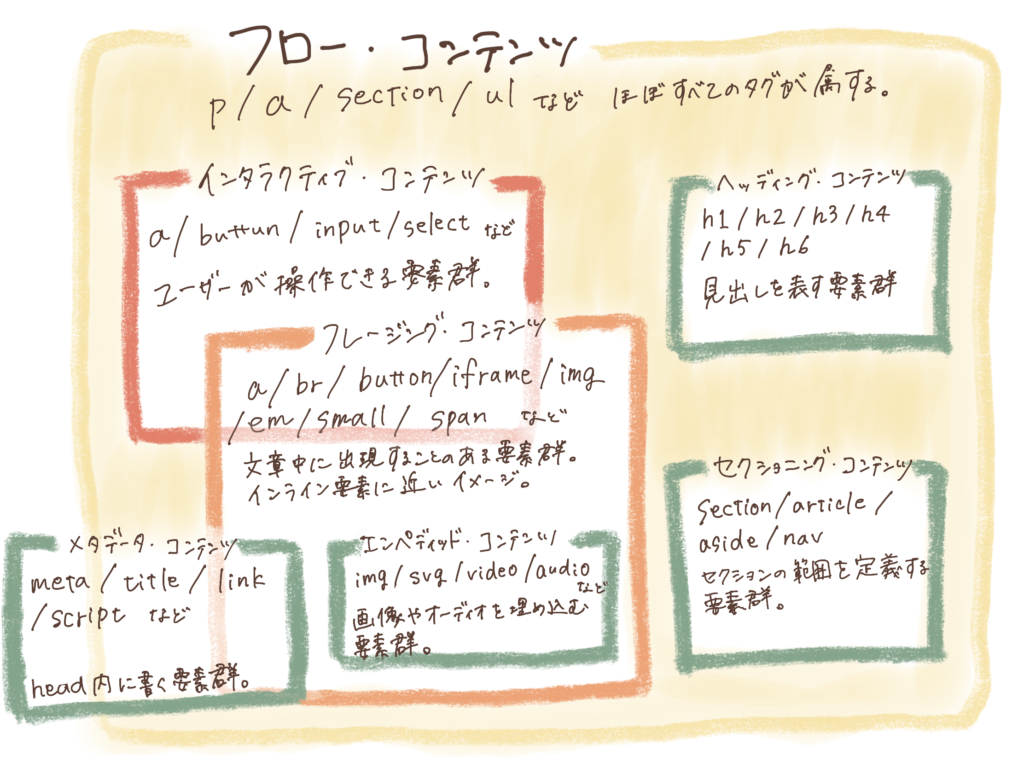 フロー・コンテンツ
p/a/section/ul など ほぼすべてのタグが属する。
インタラクティブ・コンテンツ
a/buttun/input/select など
ユーザーが操作できる要素群。
ヘッディング・コンテンツ
h1/h2/h3/h4
/h5/h6
見出しを表す要素群
フレージング・コンテンツ
a/br/button/iframe/img
/em/small/span など
文章中に出現することのある要素群。
インライン要素に近いイメージ。
セクショニング・コンテンツ
section/article/
aside/nav
セクションの範囲を定義する
要素群。
メタデータ・コンテンツ
meta/title/link
/script など
head内に書く要素群。
エンペディッド・コンテンツ
img/svg/video/audio
など
画像やオーディオを埋め込む
要素群。